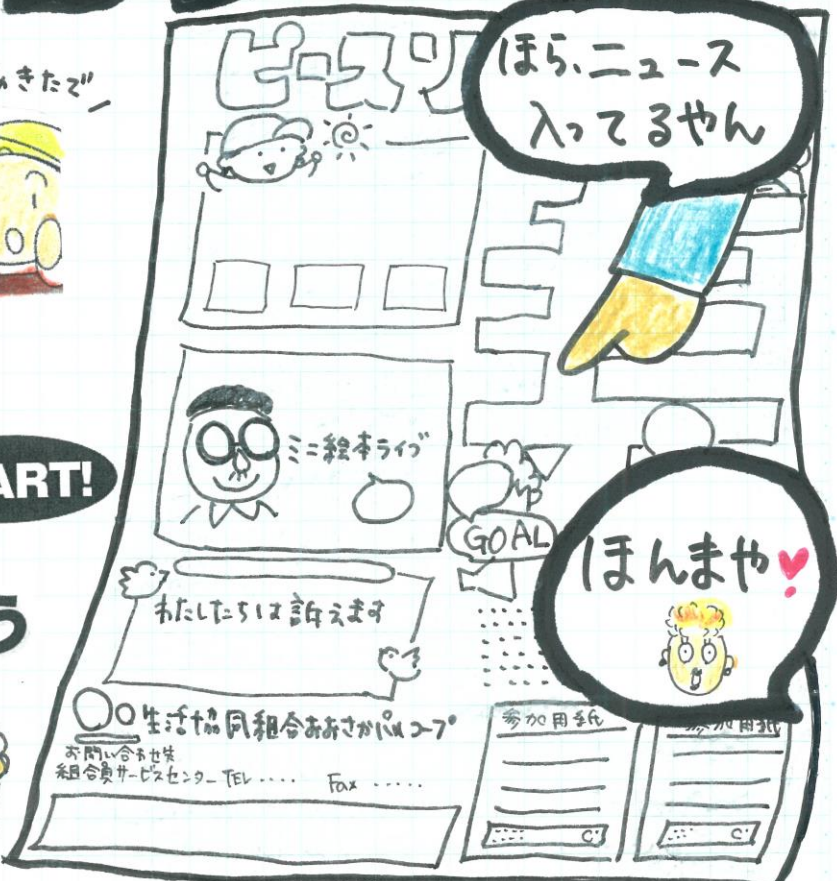 きたで
ピースリ
ほら、ニュース
入ってるやん
ART!
ミニ絵本ライブ
GOAL
ほんまや
わたしたちは訴えます
う
生活協同組合おおさかパルコープ
お問い合わせ先
組合員サービスセンター TEL ..... Fax .....
参加用紙
参加用紙